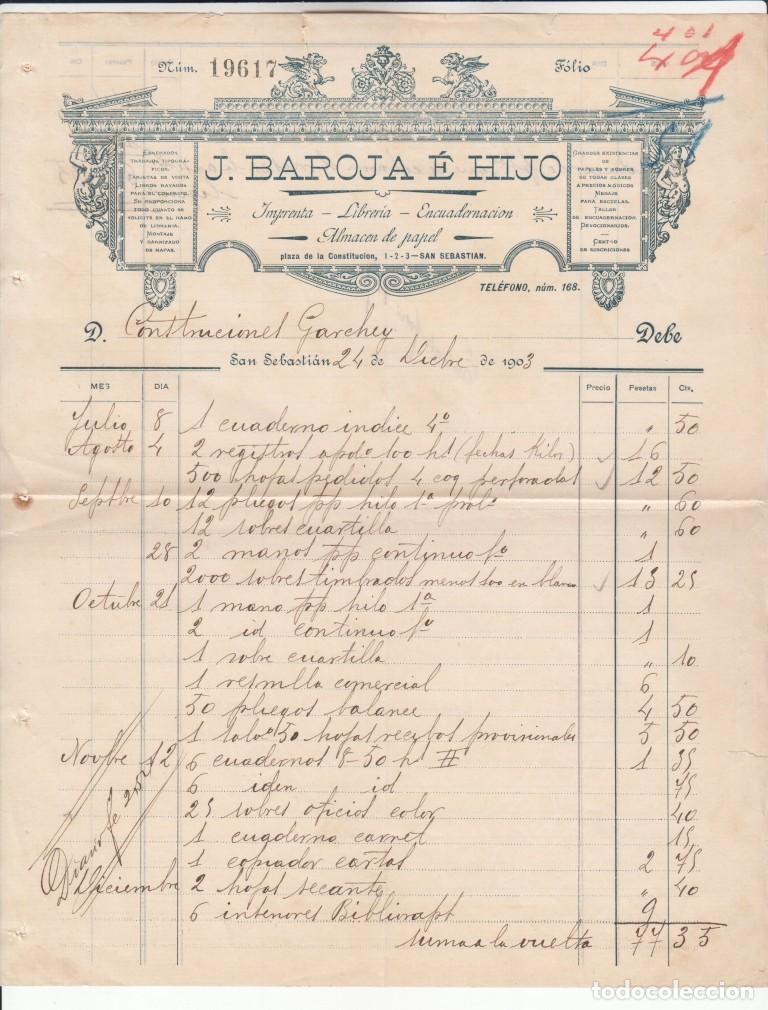 Núm. 19617
Fólio
401
ENCARGOS
TRABAJOS TIPOGRÁ-
FICOS.
TARJETAS DE VISITA
LIBROS RAYADOS
PARA EL COMERCIO.
SE PROPORCIONA
TODO CUANTO SE
SOLICITE EN EL RAMO
DE LIBRERIA.
MONTAJE
Y BARNIZADO
DE MAPAS.
J. BAROJA É HIJO
Imprenta – Librería – Encuadernacion
Almacen de papel
plaza de la Constitucion, 1-2-3—SAN SEBASTIAN.
GRANDES EXISTENCIAS
DE
PAPELES Y SOBRES
DE TODAS CLASES
A PRECIOS MÓDICOS
MENAJE
PARA ESCUELAS.
TALLER
DE ENCUADERNACIÓN
DEVOCIONARIOS.
CENTRO
DE SUSCRICIONES
TELÉFONO, núm. 168.
D. Construciones Garchey Debe
San Sebastián 24 de Dicbre de 1903
MES DIA Precio Pesetas Cts.
Julio 8 1 cuaderno indice 4º " 50
Agosto 4 2 registros apdº 100 hs (fechas Kilos) 16
500 hojas pedidos 4 coq perforadas 12 50
Septbre 10 12 pliegos pp hilo 1ª prolª " 60
12 sobres cuartilla " 60
28 2 manos pp continuo fº 1
2000 sobres timbrados menos 100 en blanco 13 25
Octubre 21 1 mano pp hilo 1ª 1
2 id continuo fº 1
1 sobre cuartilla " 10
1 resmilla comercial 6
50 pliegos balance 4 50
1 taloº 50 hojas recibos provisionales 5 50
Novbre 12 6 cuadernos 8-50 hs # 1 35
6 iden id 75
25 sobres oficios color 40
1 cuaderno carnet 15
1 copiador cartas 2 75
Diario fº 252
Diciembre 2 hojas secante " 40
6 interiores Bibliorapt 9
suma a la vuelta 77 35
todocoleccion